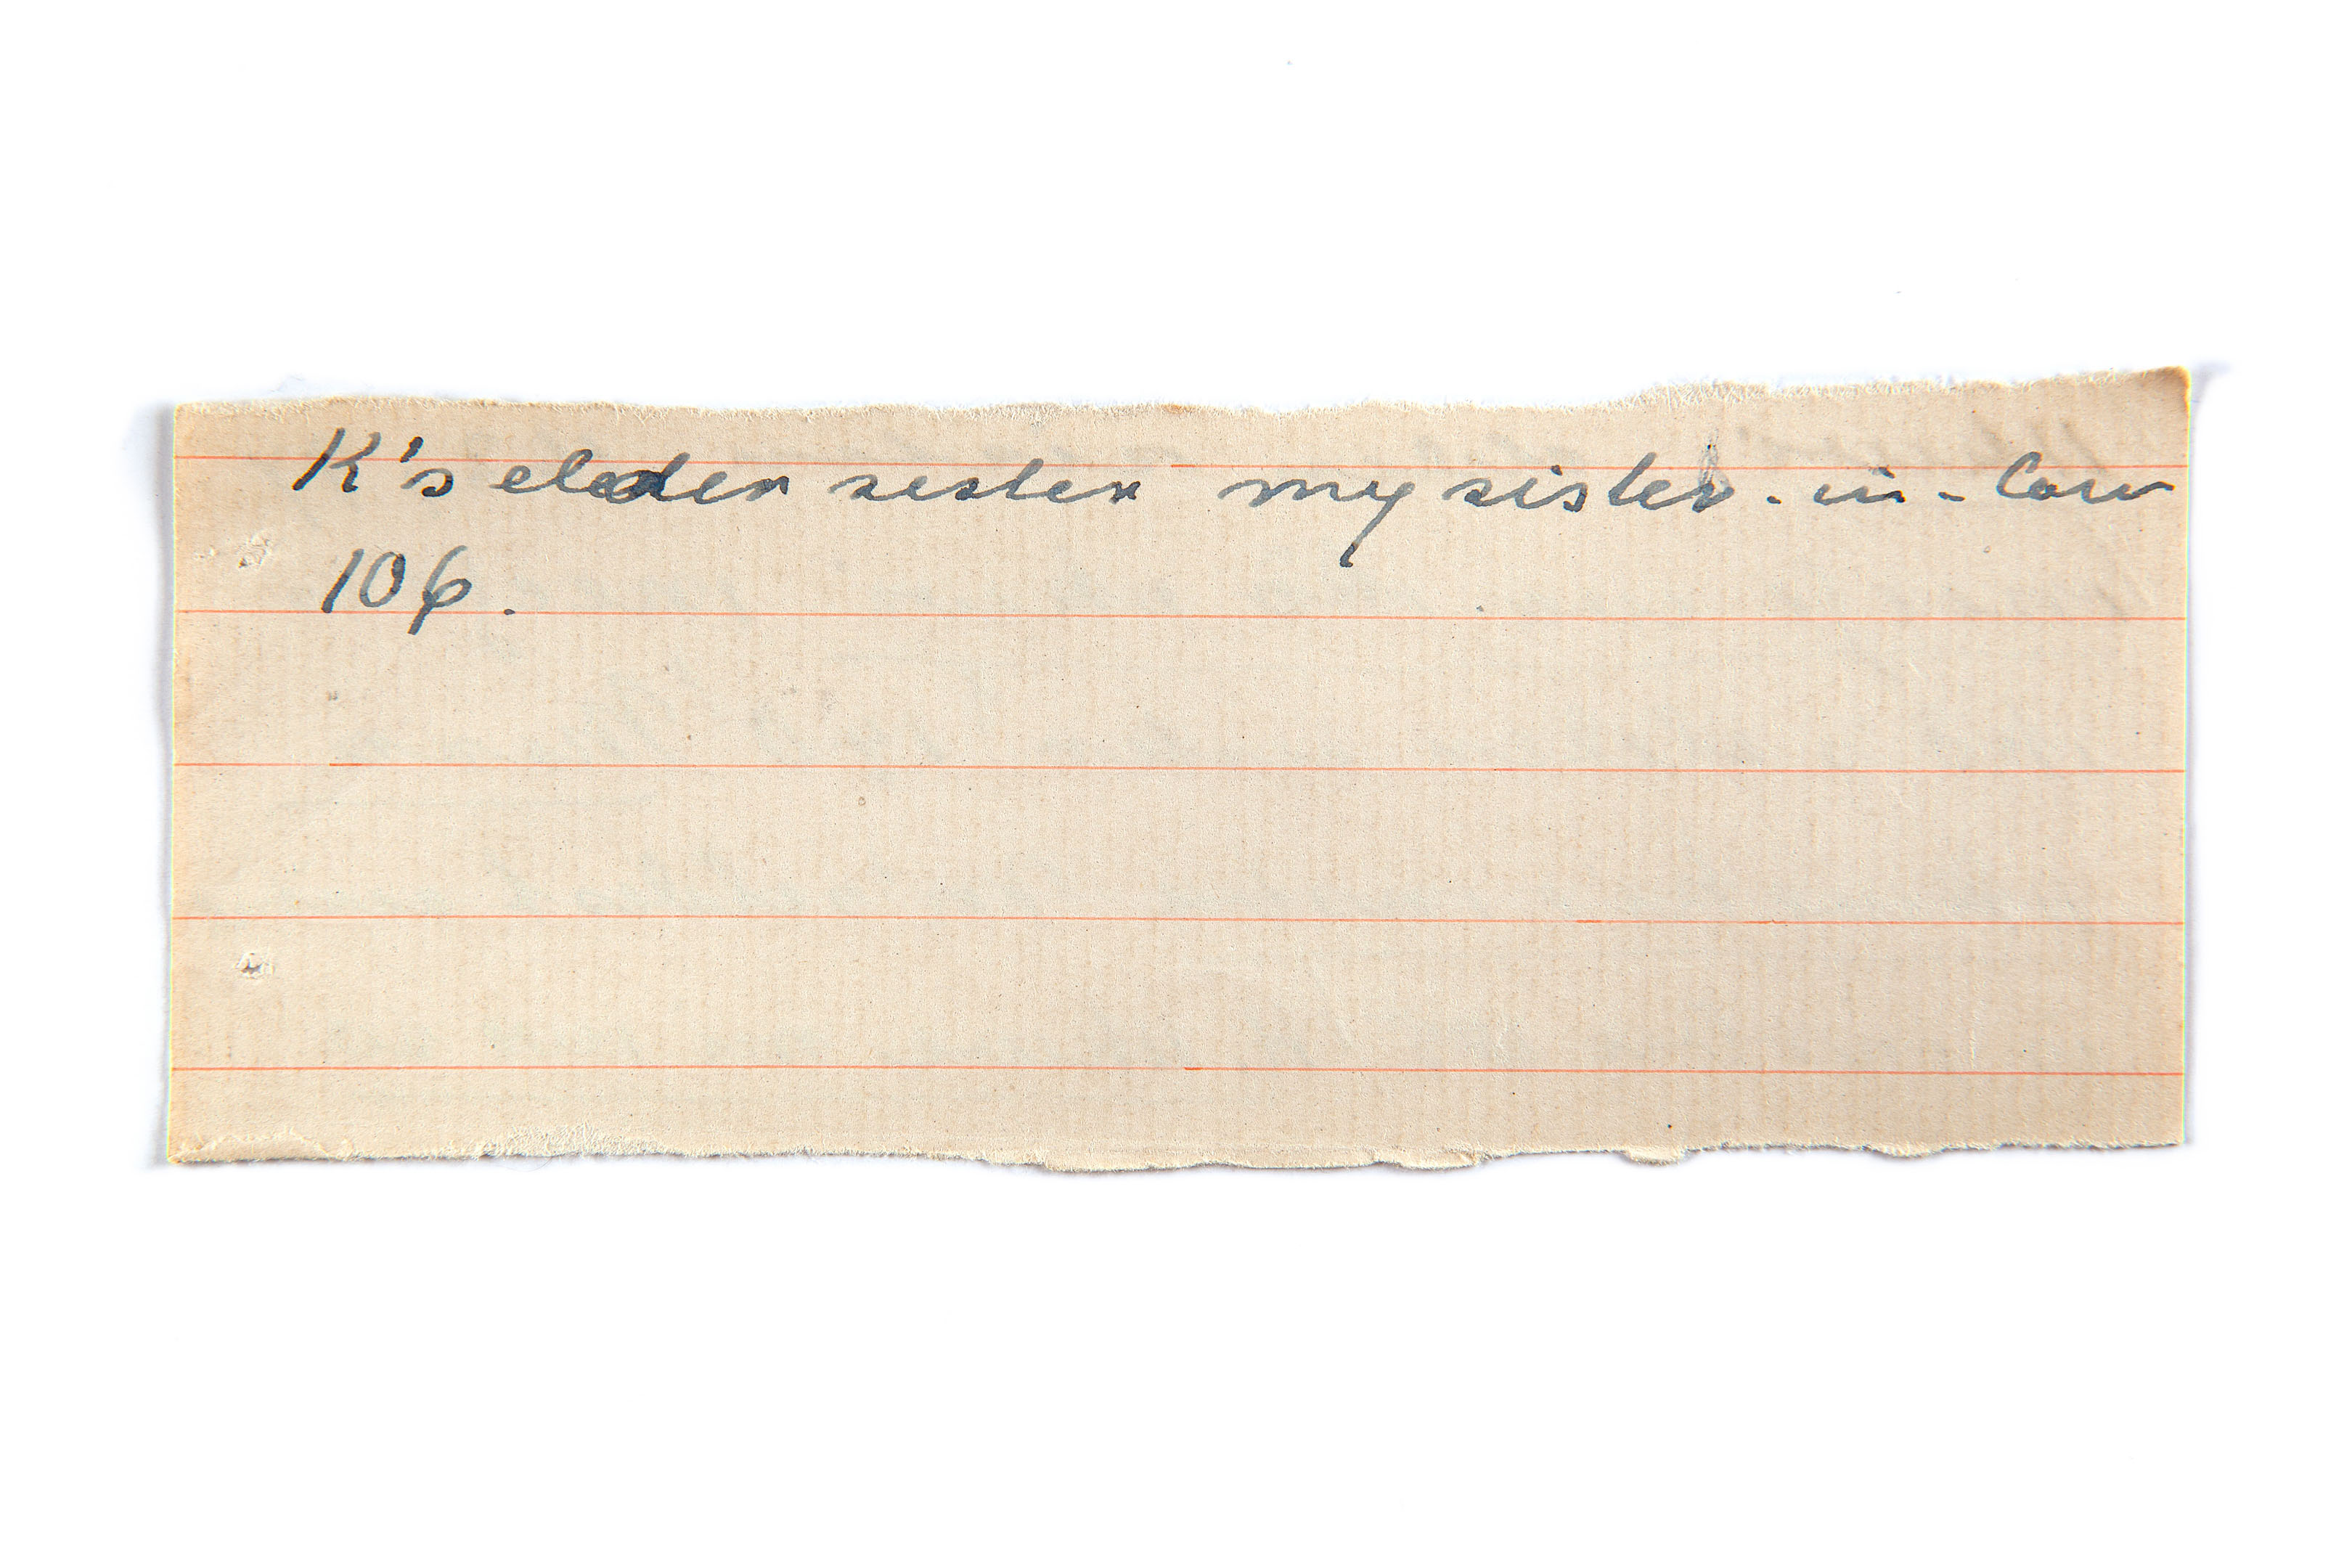 K's elder sister my sister-in-law
106.